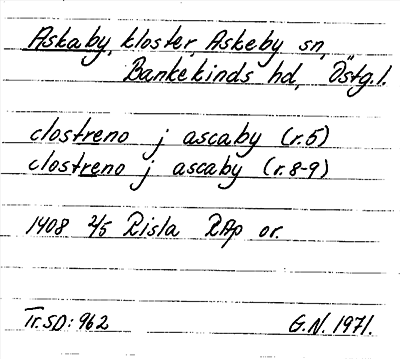 Askaby, kloster, Askeby sn,
Bankekinds hd, Östg.l.
clostreno j ascaby (r.5)
clostreno j ascaby (r.8-9)
1408 2/5 Risla RAp or.
Tr.SD: 962 G.N. 1971.